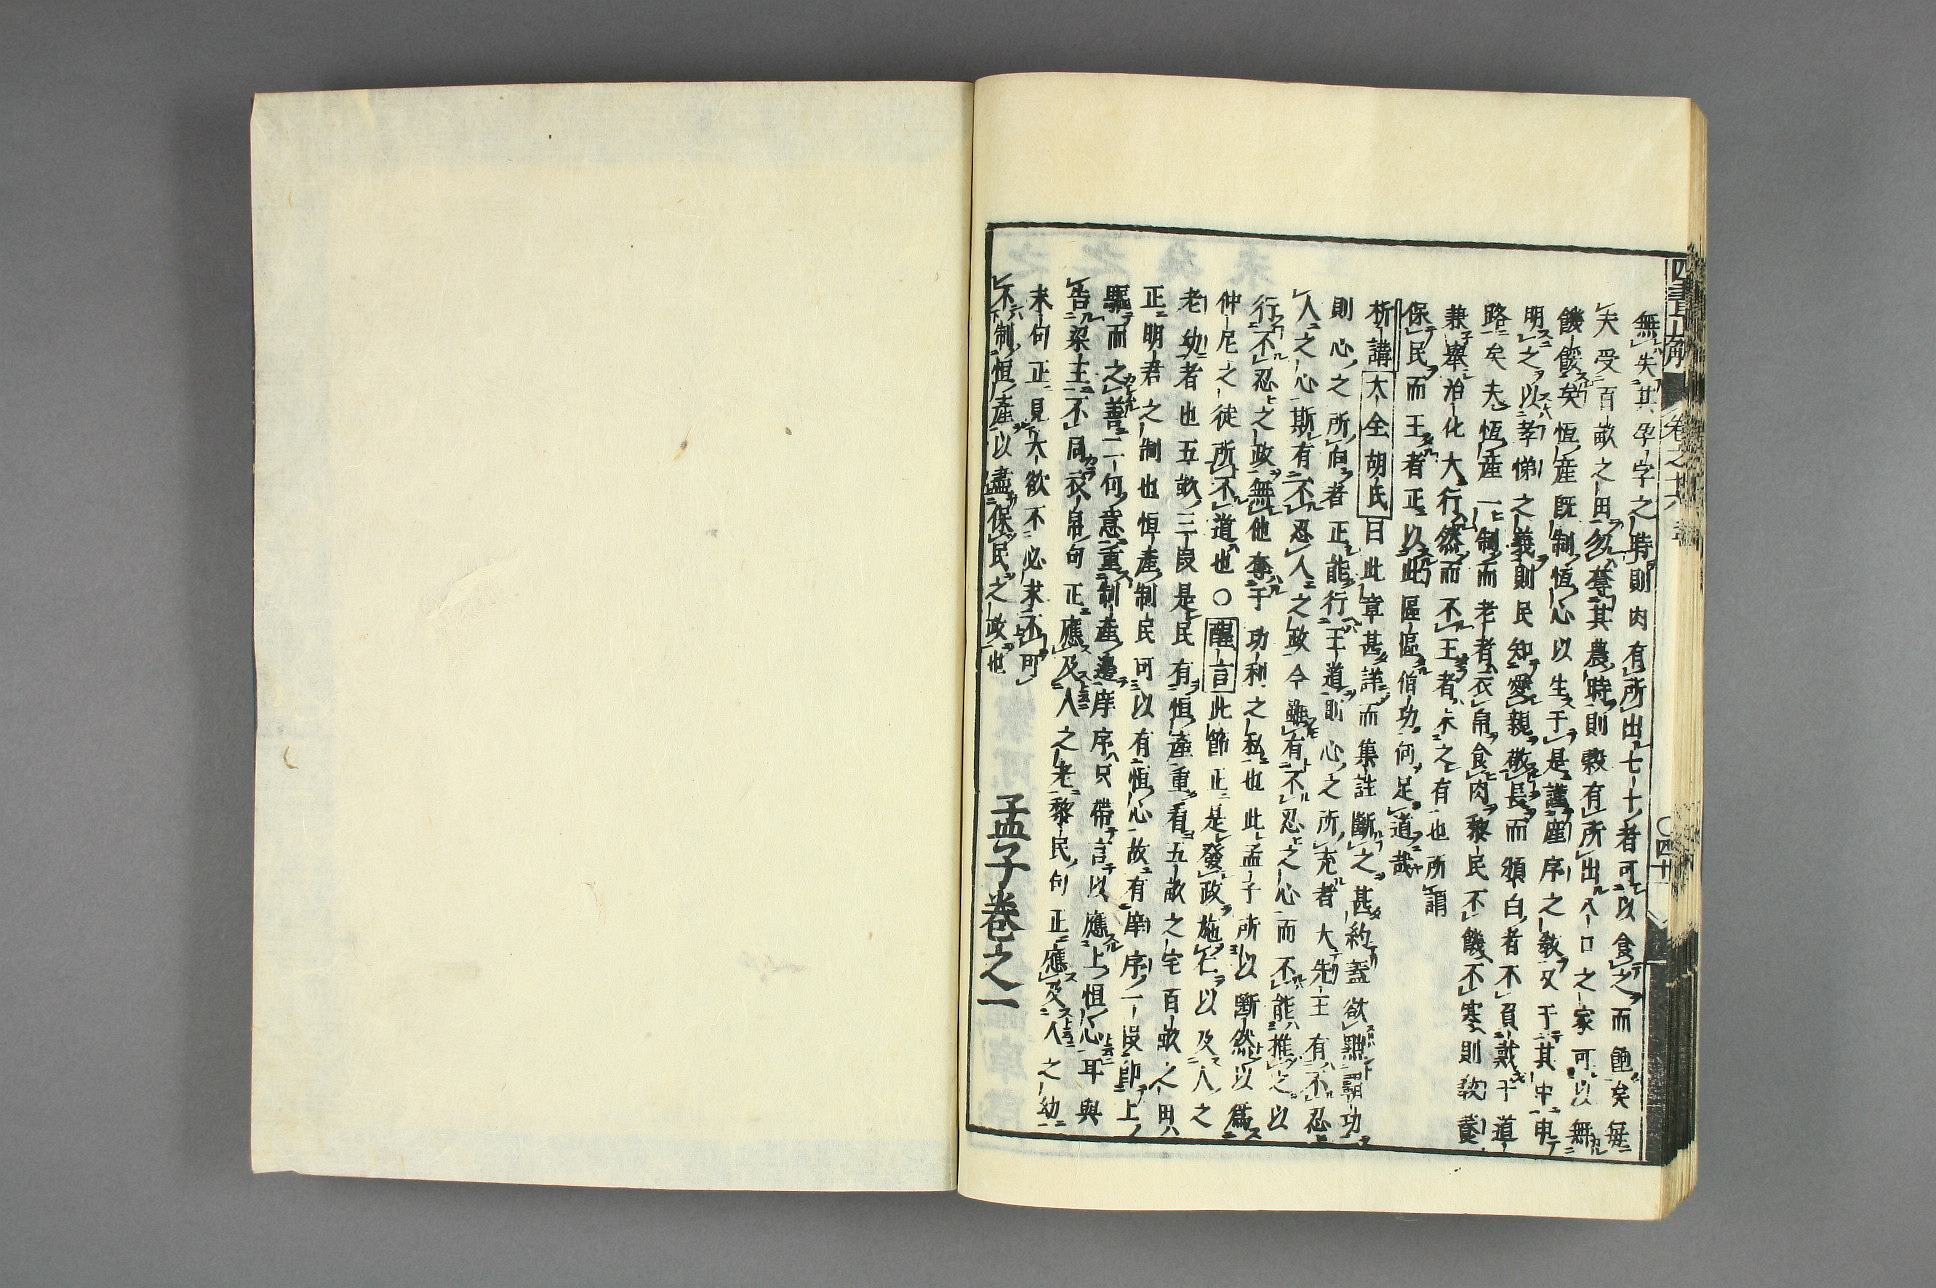 無失其孕字之時則肉有所出七十者可以食之而飽矣無
失受百畝之田勿奪其農時則穀有所出八口之家可以無
饑餒矣恆産既制恆心以生于是謹庠序之敎又于其中申
明之以孝悌之義則民知愛親敬長而頒白者不負戴于道
路矣夫恆産一制而老者衣帛食肉黎民不饑不寒則敎養
兼舉治化大行然而不王者未之有也所謂
保民而王者正以此區區伯功何足道哉
析講大全胡氏曰此章甚詳而集註斷之甚約蓋欲黜覇功
則心之所向者正能行王道則心之所充者大先王有不忍
人之心斯有不忍人之政今雖有不忍之心而不能推之以
行不忍之政無他奪于功利之私也此孟子所以斷然以爲
仲尼之徒所不道也○醒言此節正是發政施仁以及人之
老幼者也五畝三段是民有恆産重看五畝之宅百畝之田
正明君之制也恆産制民可以有恆心故有庠序一段即上
驅而之善一句意重制産邊庠序只帶言以應上恒心耳與
告梁王不同衣帛句正應及人之老黎民句正應及人之幼
末句正見大欲不必求不可
不制恒産以盡保民之政也
孟子卷之一
四書
卷之十六
○四十